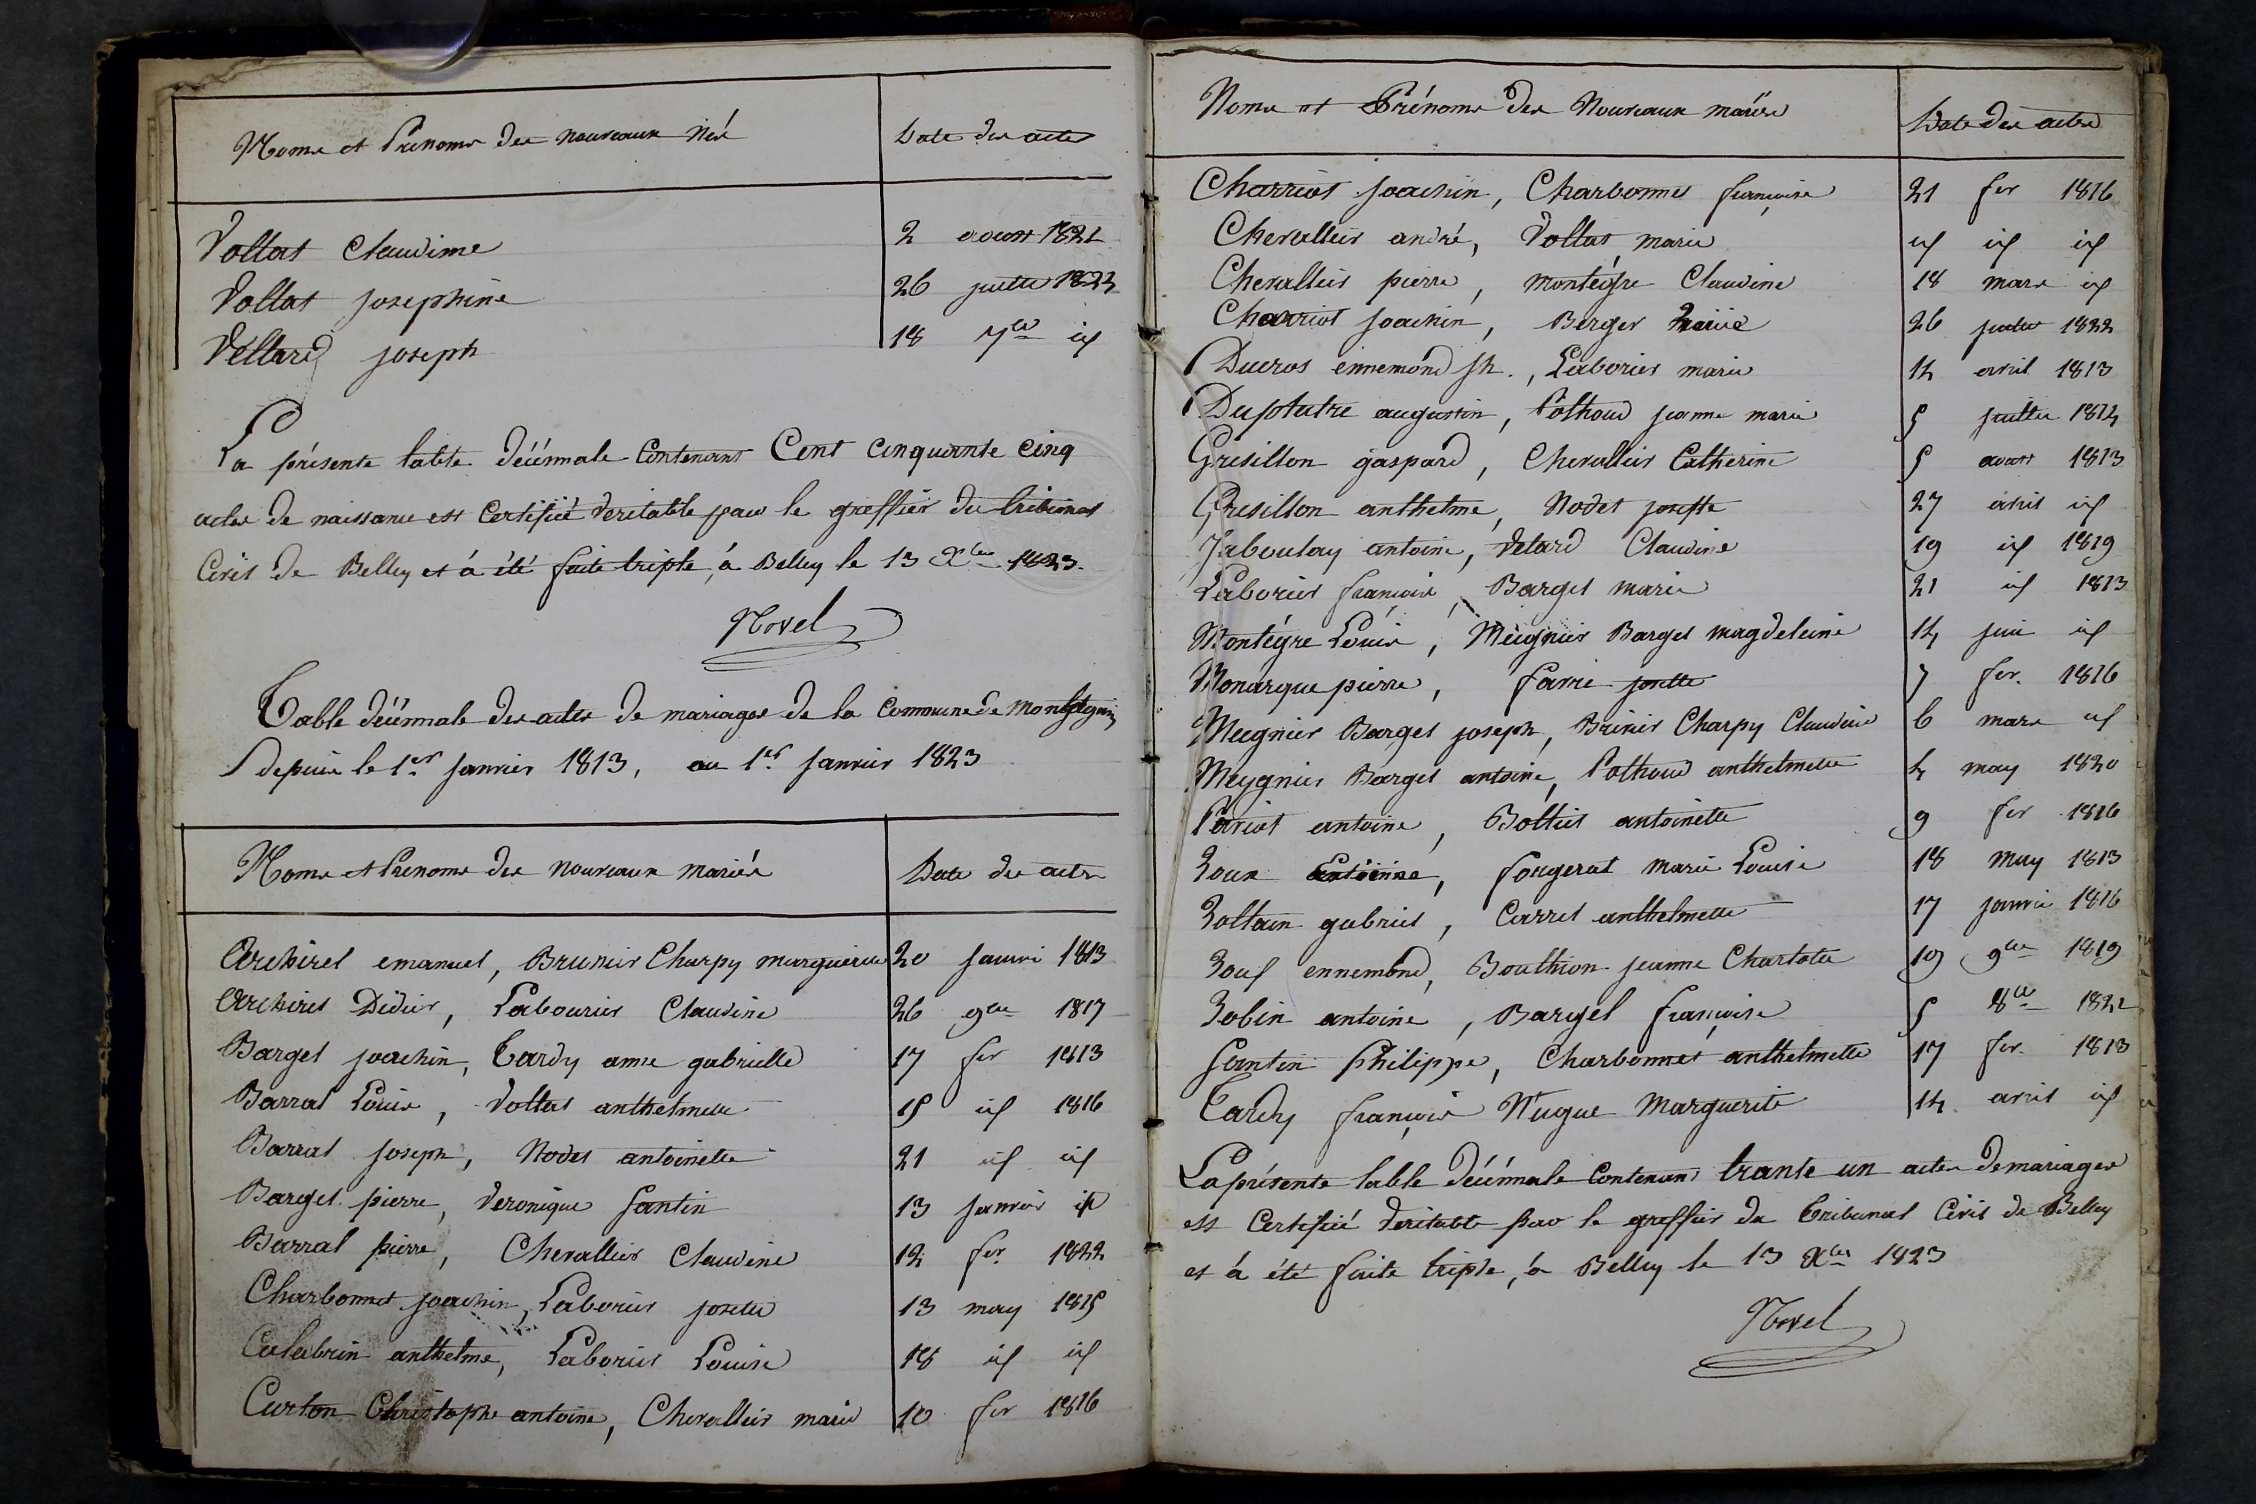 Noms et Prenoms des nouveaux Nés
Date des actes
Vollat Claudine 2 aoust 1821
Vollat josephine 26 juillet 1822
Vellard joseph 18 7bre id
La présente table décénnale Contenant Cent cinquante cinq
actes de naissance est Certifiée veritable par le greffier du tribunal
Civil de Belley et à été faite triple, à Belley le 13 Xbre 1823.
Novel
Table décénnale des actes de mariages de la Commune de
depuis le 1er Janvier 1813, au 1er Janvier 1823
Noms et Prenoms des nouveaux mariés
Date des actes
Archirel emanuel, Brunier Charpy marguerite 20 Janvier 1813
Archirel Didier, Labourier Claudine 26 9bre 1817
Barget joachin, Tardy anne gabrielle 17 fer 1813
Barral Louis, Vollat anthelmette 15 id 1816
Barral Joseph, Nodet antoinette 21 id id
Barget pierre, veronique Santin 13 Janvier id
Barral pierre, Chevallier Claudine 12 fer 1822
Charbonnet joachin, Laborier josette 13 may 1815
Calabrin anthelme, Laborier Louise 18 id id
Curton Christophe antoine, Chevallier marie 10 fer 1816
Noms et Prénoms des Nouveaux mariés
Date des actes
Charriot Joachin, Charbonnet françoise 21 fer 1816
Chevallier andré, Vollat marie id id
Chevallier pierre, montégre Claudine 18 mars id
Charriot Joachin, Berger 26 juillet 1822
Ducros ennemond jh., Laborier marie 14 avril 1813
Duplatre augustin, Pothoud jeanne marie 5 juillet 1814
Grisillon gaspard, Chevallier Catherine 5 aoust 1813
Grisillon anthelme, Nodet josette 27 avril id
Jaboulay antoine, Velard Claudine 19 id 1819
Laborier françois, Barget marie 21 id 1813
Montégre Louis, Meugnier Barget magdeleine 14 juin id
Monarque pierre, favrie josette 7 fer. 1816
Meugnier Barget joseph, Brunier Charpy Claudine 6 mars id
Meygnier Barget antoine, Pothoud anthelmette 4 may 1820
Pariot antoine, Bollier antoinette 9 fer 1816
Roux, fougerat marie Louise 18 may 1813
Rollain gabriel, Carrel anthelmette 17 janvier 1816
ennemond, Bouthion jeanne Charlotte 19 9bre 1819
Robin antoine, Bargel françoise 5 8bre 1822
Santin Philippe, Charbonnet anthelmette 17 fer. 1813
Tardy françois Nugue Marguerite 14 avril id
La présente table décénnale Contenant trante un actes de mariages
est Certifiée veritable par le greffier du Tribunal Civil de Belley
et à été faite triple, à Belley le 13 Xbre 1823
Novel